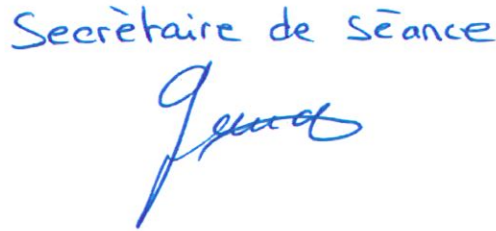 Secrètaire de séance